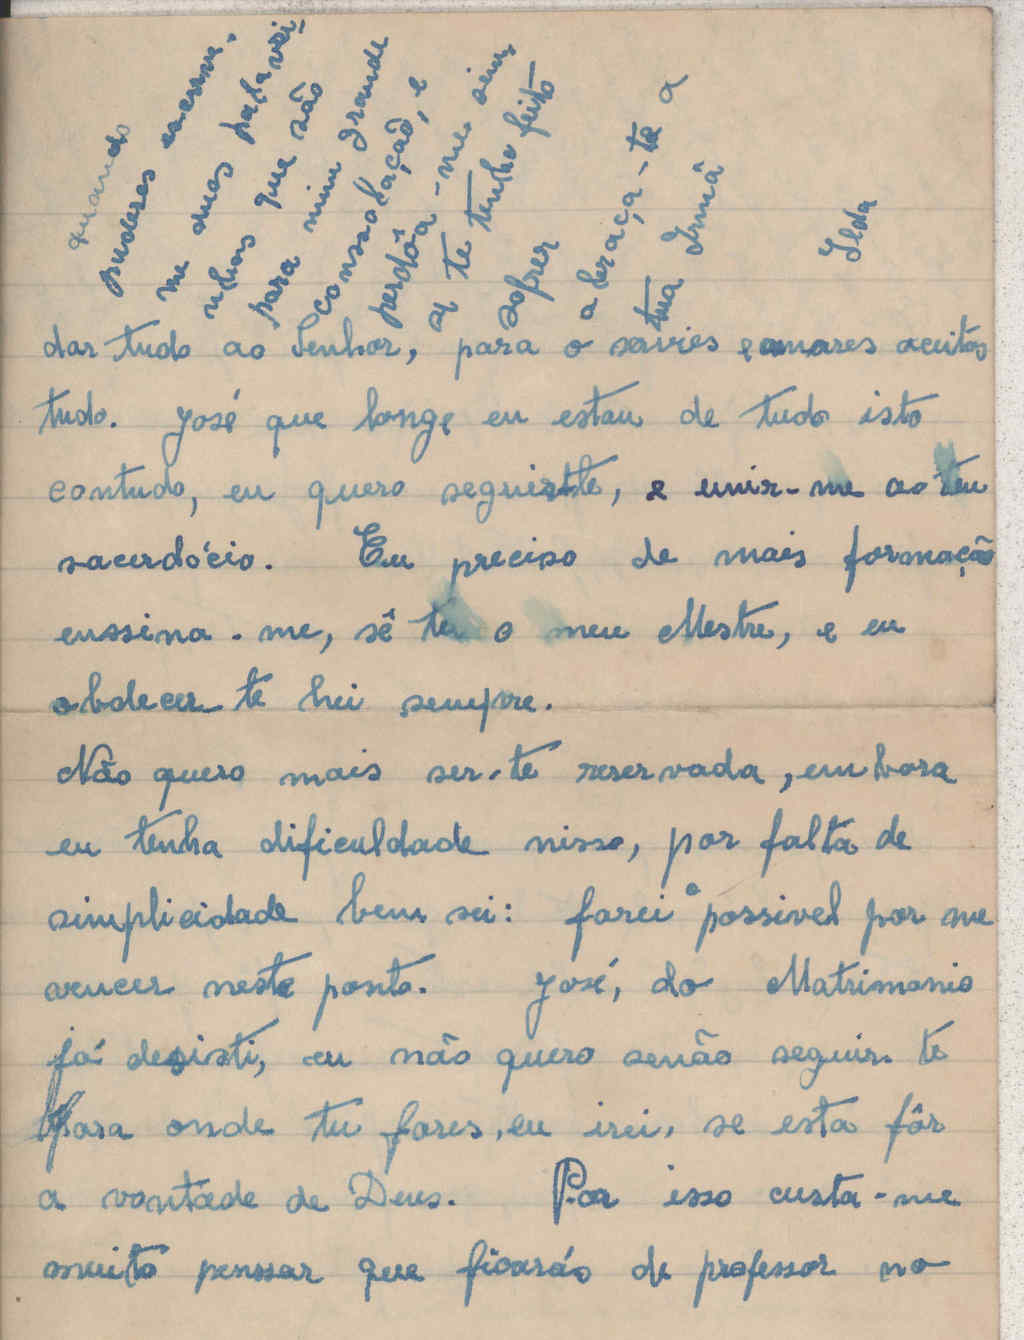 quando
puderes escreve.
me duas palavri-
nhas que são
para mim grande
consolação, e
perdôa-me, sim,
q te tenho feito
sofrer
abraça-te a
tua Irmã
Ilda
dar tudo ao Senhor, para o servires e amares aceitas
tudo. José que longe eu estou de tudo isto
contudo, eu quero seguir-te, e unir-me ao teu
sacerdócio. Eu preciso de mais formação
enssina-me, sê tu o meu Mestre, e eu
obdecer-te hei sempre.
Não quero mais ser-te reservada, embora
eu tenha dificuldade nisso, por falta de
simplicidade bem sei: farei o possivel por me
vencer neste ponto. José, do Matrimonio
já desisti, eu não quero senão seguir-te
Para onde tu fores, eu irei, se esta fôr
a vontade de Deus. Por isso custa-me
muito penssar que ficarás de professor no